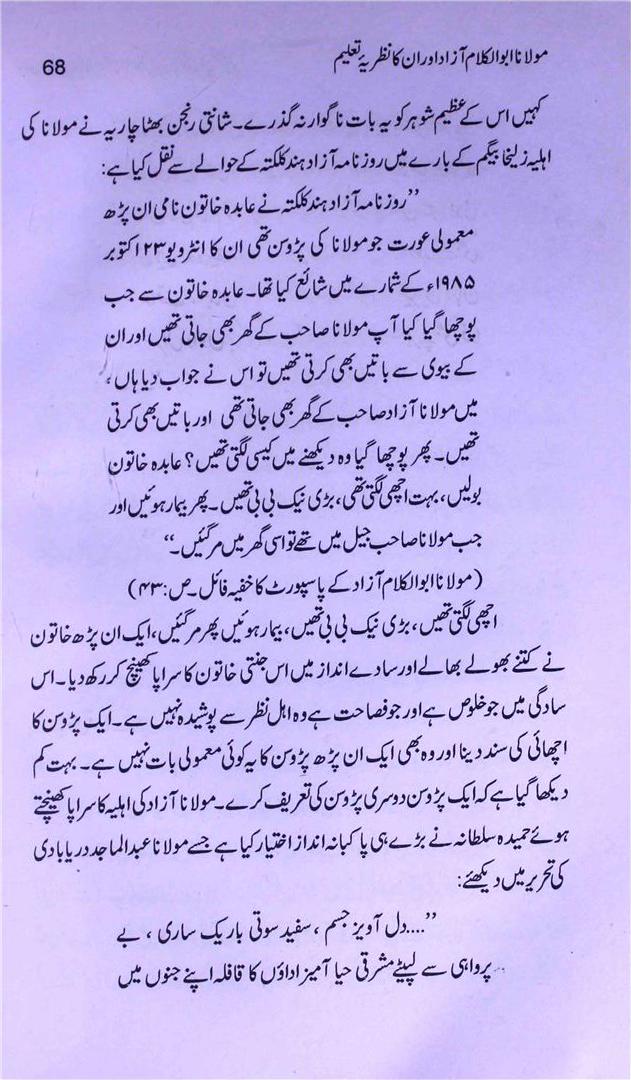 مولانا ابوالکلام آزاد اور ان کا نظریۂ تعلیم
68
کہیں اس کے عظیم شوہر کو یہ بات ناگوار نہ گذرے۔ شانتی رنجن بھٹا چاریہ نے مولانا کی
اہلیہ زلیخا بیگم کے بارے میں روزنامہ آزاد ہند کلکتہ کے حوالے سے نقل کیا ہے:
”روزنامہ آزاد ہند کلکتہ نے عابدہ خاتون نامی ان پڑھ
معمولی عورت جو مولانا کی پڑوسن تھی ان کا انٹرویو ۲۳ اکتوبر
۱۹۸۵ء کے شمارے میں شائع کیا تھا۔ عابدہ خاتون سے جب
پوچھا گیا کیا آپ مولانا صاحب کے گھر بھی جاتی تھیں اور ان
کے بیوی سے باتیں بھی کرتی تھیں تو اس نے جواب دیا ہاں،
میں مولانا آزاد صاحب کے گھر بھی جاتی تھی اور باتیں بھی کرتی
تھیں۔ پھر پوچھا گیا وہ دیکھنے میں کیسی لگتی تھیں؟ عابدہ خاتون
بولیں، بہت اچھی لگتی تھی، بڑی نیک بی بی تھیں۔ پھر بیمار ہوئیں اور
جب مولانا صاحب جیل میں تھے تو اسی گھر میں مر گئیں۔“
(مولانا ابوالکلام آزاد کے پاسپورٹ کا خفیہ فائل۔ ص: ۴۳)
اچھی لگتی تھیں، بڑی نیک بی بی تھیں، بیمار ہوئیں پھر مر گئیں، ایک ان پڑھ خاتون
نے کتنے بھولے بھالے اور سادے انداز میں اس جنتی خاتون کا سراپا کھینچ کر رکھ دیا۔ اس
سادگی میں جو خلوص ہے اور جو فصاحت ہے وہ اہل نظر سے پوشیدہ نہیں ہے۔ ایک پڑوسن کا
اچھائی کی سند دینا اور وہ بھی ایک ان پڑھ پڑوسن کا یہ کوئی معمولی بات نہیں ہے۔ بہت کم
دیکھا گیا ہے کہ ایک پڑوسن دوسری پڑوسن کی تعریف کرے۔ مولانا آزاد کی اہلیہ کا سراپا کھینچتے
ہوئے حمیدہ سلطانہ نے بڑے ہی پاکبانہ انداز اختیار کیا ہے جسے مولانا عبدالماجد دریابادی
کی تحریر میں دیکھئے:
”....دل آویز جسم، سفید سوتی باریک ساری، بے
پرواہی سے لپیٹے مشرقی حیا آمیز اداؤں کا قافلہ اپنے جنوں میں